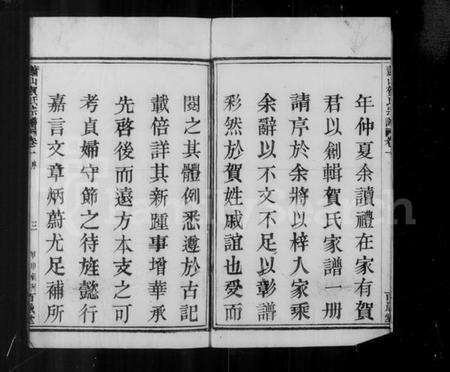 年仲夏余讀禮在家有賀
君以創輯賀氏家譜一册
請序於余將以梓入家乘
余辭以不文不足以彰譜
彩然於賀姓戚誼也受而
閱之其體例悉遵於古記
載倍詳其新踵事增華承
先啓後而遠方本支之可
考貞婦守節之待旌懿行
嘉言文章炳蔚尤足補所
蕭山賀氏宗譜 卷一 序
三